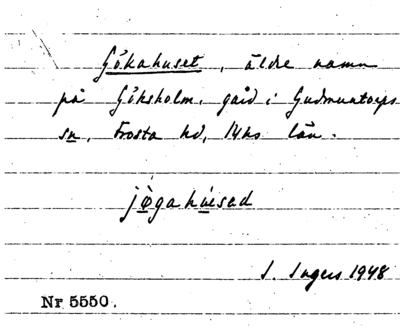 Gökahuset, äldre namn
på Göksholm, gård i Gudmuntorps
sn, Frosta hd, Mhs län.
jøgahúesad
I. Ingers 1948
Nr 5550.